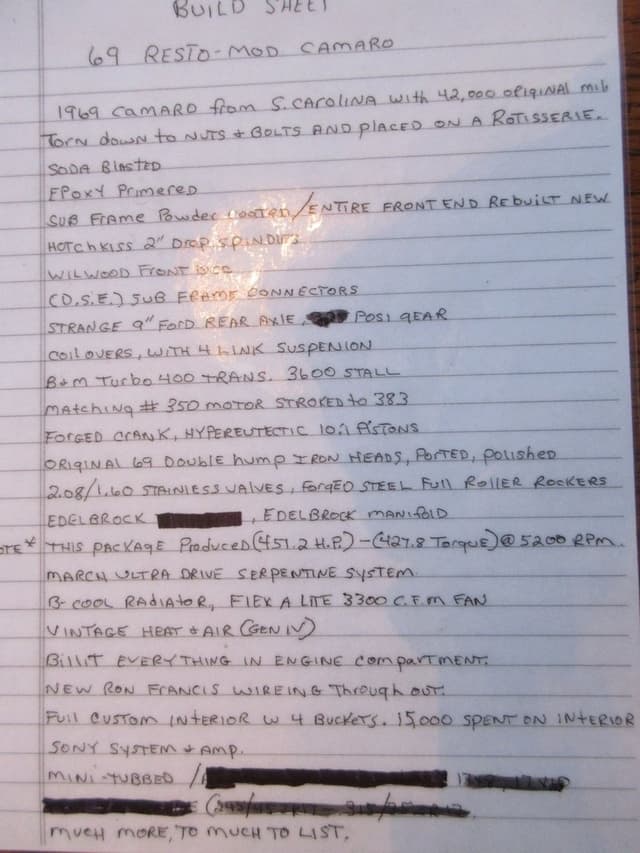 BUILD SHEET
69 RESTO-MOD CAMARO
1969 CAMARO from S. CAROLINA with 42,000 ORIGINAL mil
TORN down to NUTS & BOLTS AND placED ON A ROTISSERIE.
SODA BLASTED
EPOXY PRIMERED
SUB FRAME POWDER COATED/ENTIRE FRONT END REBUILT NEW
HOTCHKISS 2" DROP SPINDLES
WILWOOD FRONT DISC
(D.S.E.) SUB FRAME CONNECTORS
STRANGE 9" FORD REAR AXIE, POSI gEAR
COILOVERS, WITH 4 LINK SUSPENION
B&M TURBO 400 TRANS. 3600 STALL
MATCHING # 350 MOTOR STROKED to 383
FORGED CRANK, HYPEREUTECTIC 10:1 PISTONS
ORIGINAL 69 DOUBLE hump IRON HEADS, PORTED, polished
2.08/1.60 STAINIESS VALVES, FORGED STEEL FUll ROLLER ROCKERS
EDELBROCK , EDELBROCK MANIFOLD
OTE* THIS PACKAGE PRODUCED (451.2 H.P.) - (427.8 TORQUE) @ 5200 RPM.
MARCH ULTRA DRIVE SERPENTINE SYSTEM
B-COOL RADIATOR, FlEX A LITE 3300 C.F.M FAN
VINTAGE HEAT & AIR (GEN IV)
BillIT EVERYTHING IN ENGINE compARTMENT.
NEW RON FRANCIS WIREING Through out.
FUll CUSTOM INTERIOR W 4 BUCKETS. 15,000 SPENT ON INTERIOR
SONY SYSTEM & AMP.
MINI-TUBBED /
MUCH MORE, TO MUCH TO LIST.